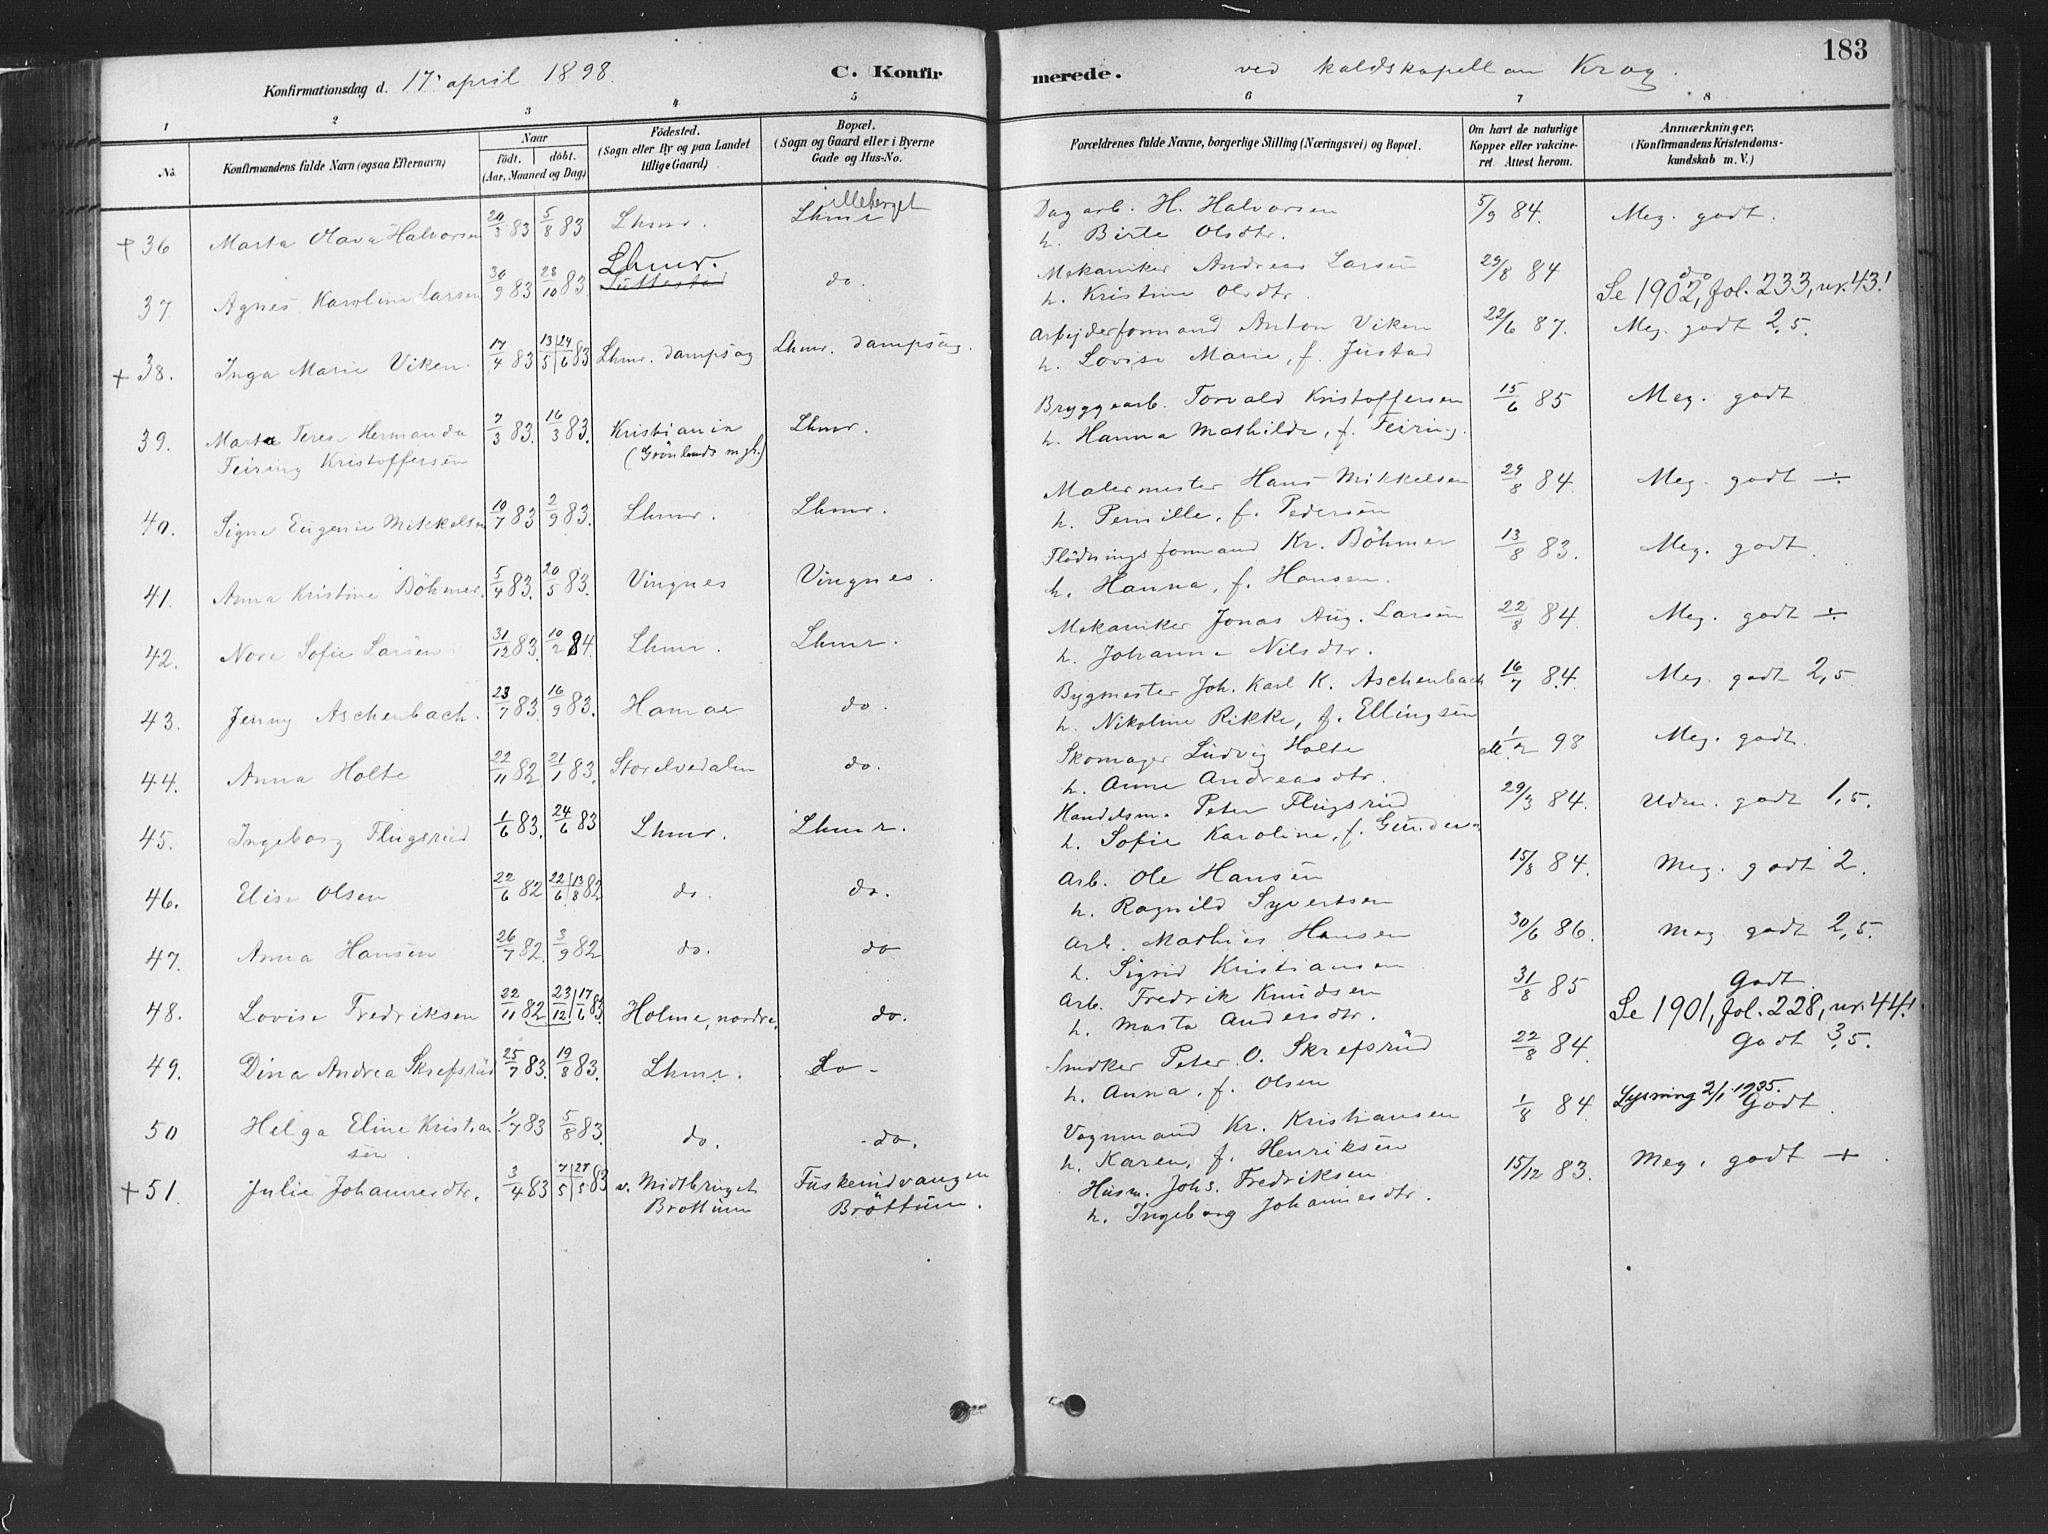 183
Konfirmationsdag d. 17. april 1898. C. Konfirmerede. ved kaldskapellan Krag.
1 2 3 4 5 6 7 8
No. Konfirmandens fulde Navn (ogsaa Efternavn) Naar Födt. döbt. (Aar, Maaned og Dag) Födested. (Sogn eller By og paa Landet tillige Gaard) Bopæl. (Sogn og Gaard eller i Byerne Gade og Hus-No. Forældrenes fulde Navne, borgerlige Stilling (Næringsvei) og Bopæl. Om havt de naturlige Kopper eller vaccineret. Attest herom. Anmærkninger, (Konfirmandens Kristendomskundskab m. V.)
+ 36 Marta Olava Halvorsen 20/3 83 5/8 83 Lhmr. Lhmr Dagarb. H. Halvorsen 5/9 84. Meg. godt.
h. Birte Olsdtr.
37. Agnes Karoline Larsen 30/9 83 28/10 83. Lhmr. Suttestad do. Mekaniker Andreas Larsen 29/8 84 do
h. Kristine Olsdtr. Se 1902, fol. 233, nr. 43!
+ 38. Inga Marie Viken. 17/4 83 13/5 24/6 83 Lhmr. dampsag Lhmr. dampsag. Arbejderformand Anton Viken 22/6 87. Meg. godt 2,5.
h. Lovise Marie, f. Justad
39. Marta Terese Hermanda 7/3 83. 16/3 83. Kristiania Lhmr. Bryggearb. Torvald Kristoffersen 15/6 85 Meg. godt
Feiring Kristoffersen (Grönlands mgh.) h. Hanna Mathilde, f. Feiring.
40. Signe Eugenie Mikkelsen 10/7 83 2/9 83. Lhmr. Lhmr. Malermester Hans Mikkelsen 29/8 84. Meg. godt ÷
h. Pernille, f. Pedersen
41. Anna Kristine Böhmer. 5/4 83. 20/5 83. Vingnes Vingnes. Flödningsformand Kr. Böhmer 13/8 83. Meg. godt.
h. Hanna, f. Hansen.
42. Nora Sofie Larsen 31/12 83. 10/2 84. Lhmr. Lhmr. Mekaniker Jonas Aug. Larsen 22/8 84. Meg. godt ÷
h. Johanne Nilsdtr.
43. Jenny Aschenbach. 23/7 83. 16/9 83. Hamar do. Bygmester Joh. Karl K. Aschenbach 16/7 84. Meg. godt 2,5
h. Nikoline Rikke, f. Ellingsen
44. Anna Holte 22/11 82. 21/1 83. Storelvedalen do. Skomager Ludvig Holte 1/2 98 Meg. godt.
h. Anne Andreasdtr.
45. Ingeborg Flugsrud 1/6 83. 24/6 83 Lhmr. Lhmr. Handelsm. Peter Flugsrud 29/3 84. Udm. godt 1,5.
h. Sofie Karoline, f. Gundersen
46. Elise Olsen 22/6 82 22/6 13/8 82 do. do. Arb. Ole Hansen 15/8 84. Meg. godt 2.
h. Ragnild Syvertsen
47. Anna Hansen 26/7 82. 3/9 82 do. do Arb. Mathies Hansen 30/6 86. Meg. godt 2,5.
h. Sigrid Kristiansen
48. Lovise Fredriksen 22/11 82 23/12 17/6 83. Holme, nordre, do. Arb. Fredrik Knudsen 31/8 85 Godt.
h. Marta Andersdtr. Se 1901, fol. 228, nr. 44!
49. Dina Andrea Skrefsrud 25/7 83. 19/8 83. Lhmr. do - Snedker Peter O. Skrefsrud 22/8 84. Godt 3,5.
h. Anna, f. Olsen
50 Helga Eline Kristian 1/7 83 5/8 83. do. do. Vognmand Kr. Kristiansen 1/8 84 Lysning 2/1 1935. Godt.
sen. h. Karen, f. Henriksen
+ 51. Julie Johannesdtr. 3/4 83 7/5 27/5 83 v. Midtbruget Fuskerudvangen Husm. Johs. Fredriksen 15/12 83. Meg. godt +.
Brøttum Brøttum. h. Ingeborg Johannesdtr.